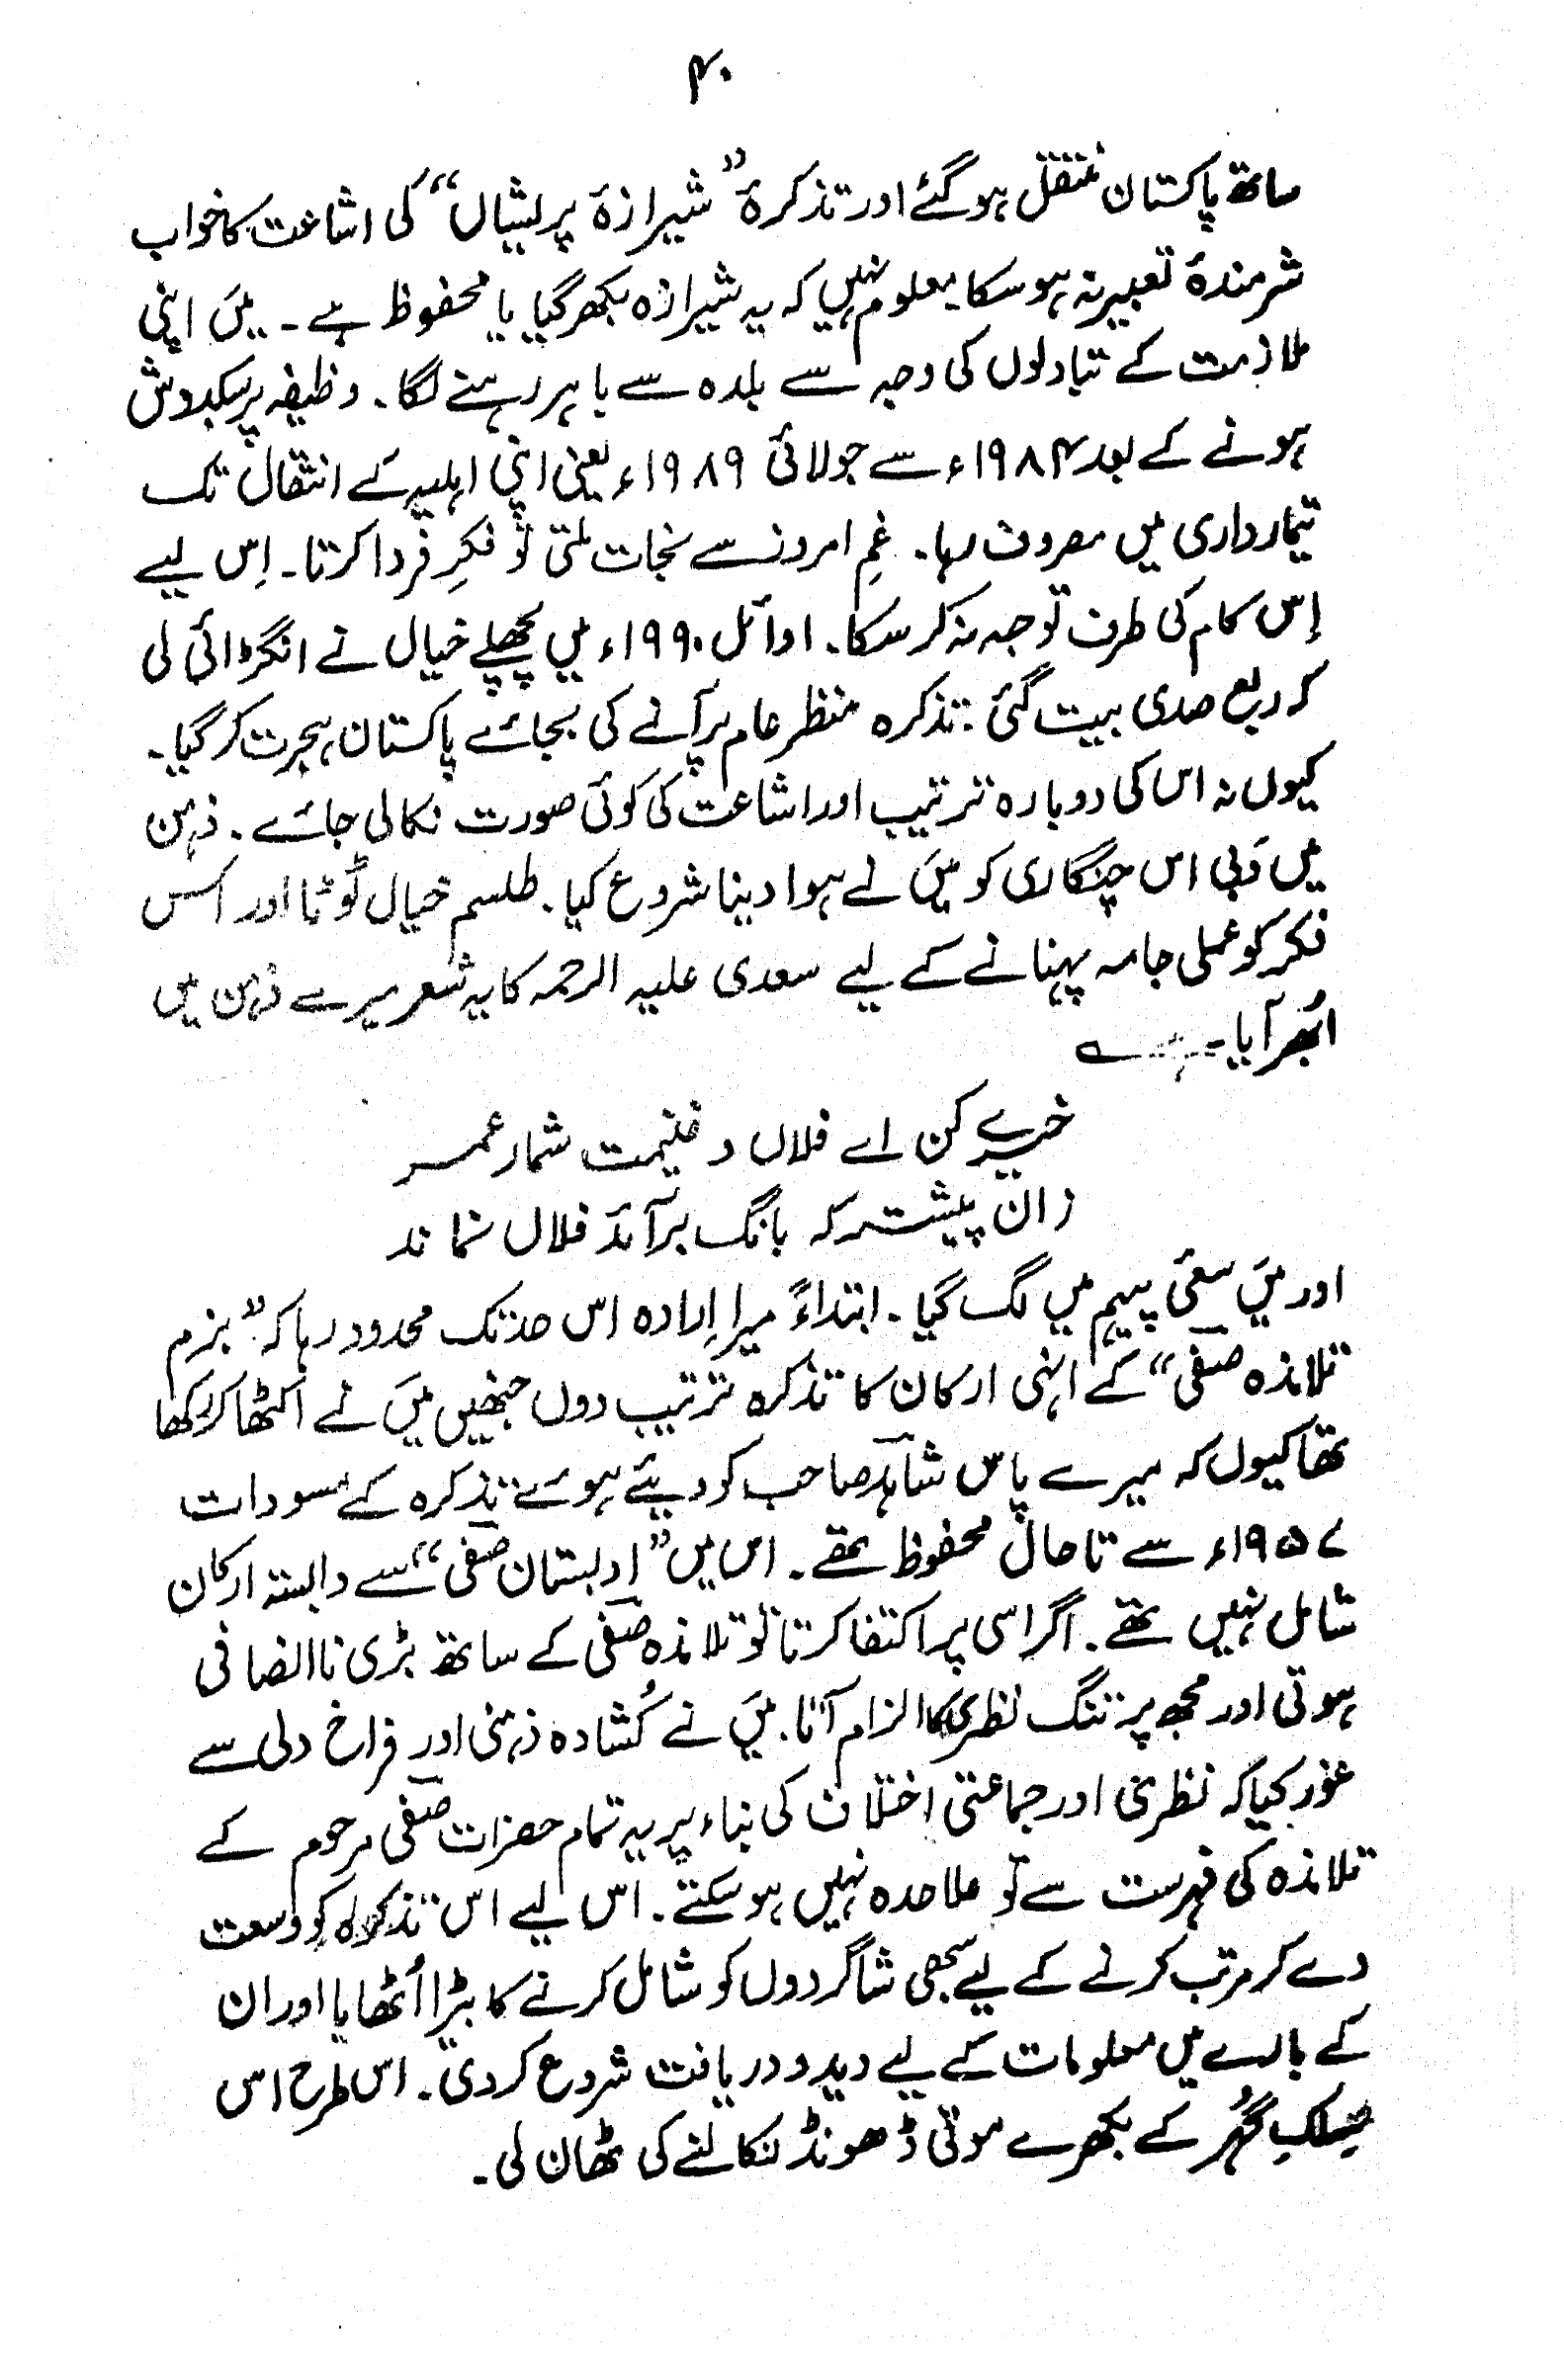 ۴۰
ساتھ پاکستان منتقل ہو گئے اور تذکرۂ ”شیرازۂ پریشاں“ کی اشاعت کا خواب
شرمندۂ تعبیر نہ ہو سکا۔ معلوم نہیں کہ یہ شیرازہ بکھر گیا یا محفوظ ہے۔ میں اپنی
ملازمت کے تبادلوں کی وجہ سے بلدہ سے باہر رہنے لگا۔ وظیفہ پر سبکدوش
ہونے کے بعد ۱۹۸۴ء سے جولائی ۱۹۸۹ء یعنی اپنی اہلیہ کے انتقال تک
تیمارداری میں مصروف رہا۔ غمِ امروز سے نجات ملتی تو فکرِ فردا کرتا۔ اِس لیے
اِس کام کی طرف توجہ نہ کر سکا۔ اوائل ۱۹۹۰ء میں پچھلے خیال نے انگڑائی لی
کہ ربع صدی بیت گئی۔ تذکرہ منظر عام پر آنے کی بجائے پاکستان ہجرت کر گیا۔
کیوں نہ اس کی دوبارہ ترتیب اور اشاعت کی کوئی صورت نکالی جائے۔ ذہن
میں دَبی اس چنگاری کو میں نے ہوا دینا شروع کیا۔ طلسم خیال ٹوٹا اور اس
فکر کو عملی جامہ پہنانے کے لیے سعدی علیہ الرحمہ کا یہ شعر میرے ذہن میں
اُبھر آیا۔
خیرے کن اے فلاں و غنیمت شمار عمر
زان پیشتر کہ بانگ برآید فلاں نماند
اور میں سعئی پیہم میں لگ گیا۔ ابتداءً میرا اِرادہ اس حد تک محدود رہا کہ ”بزم
تلامذہ صفی“ کے انہی ارکان کا تذکرہ ترتیب دوں جنھیں میں نے اکٹھا کر رکھا
تھا کیوں کہ میرے پاس شاہد صاحب کو دیئے ہوئے تذکرہ کے مسودات
۱۹۵۷ء سے تا حال محفوظ تھے۔ اس میں ”ادبستان صفی“ سے وابستہ ارکان
شامل نہیں تھے۔ اگر اسی پر اکتفا کرتا تو تلامذہ صفی کے ساتھ بڑی ناانصافی
ہوتی اور مجھ پر تنگ نظری کا الزام آتا۔ میں نے کُشادہ ذہنی اور فراخ دلی سے
غور کیا کہ نظری اور جماعتی اختلاف کی بناء پر یہ تمام حضرات صفی مرحوم کے
تلامذہ کی فہرست سے تو علاحدہ نہیں ہو سکتے۔ اس لیے اس تذکرہ کو وسعت
دے کر مرتب کرنے کے لیے سبھی شاگردوں کو شامل کرنے کا بیڑا اُٹھایا اور ان
کے بارے میں معلومات کے لیے دید و دریافت شروع کر دی۔ اس طرح اس
سِلکِ گُہر کے بکھرے موتی ڈھونڈ نکالنے کی ٹھان لی۔